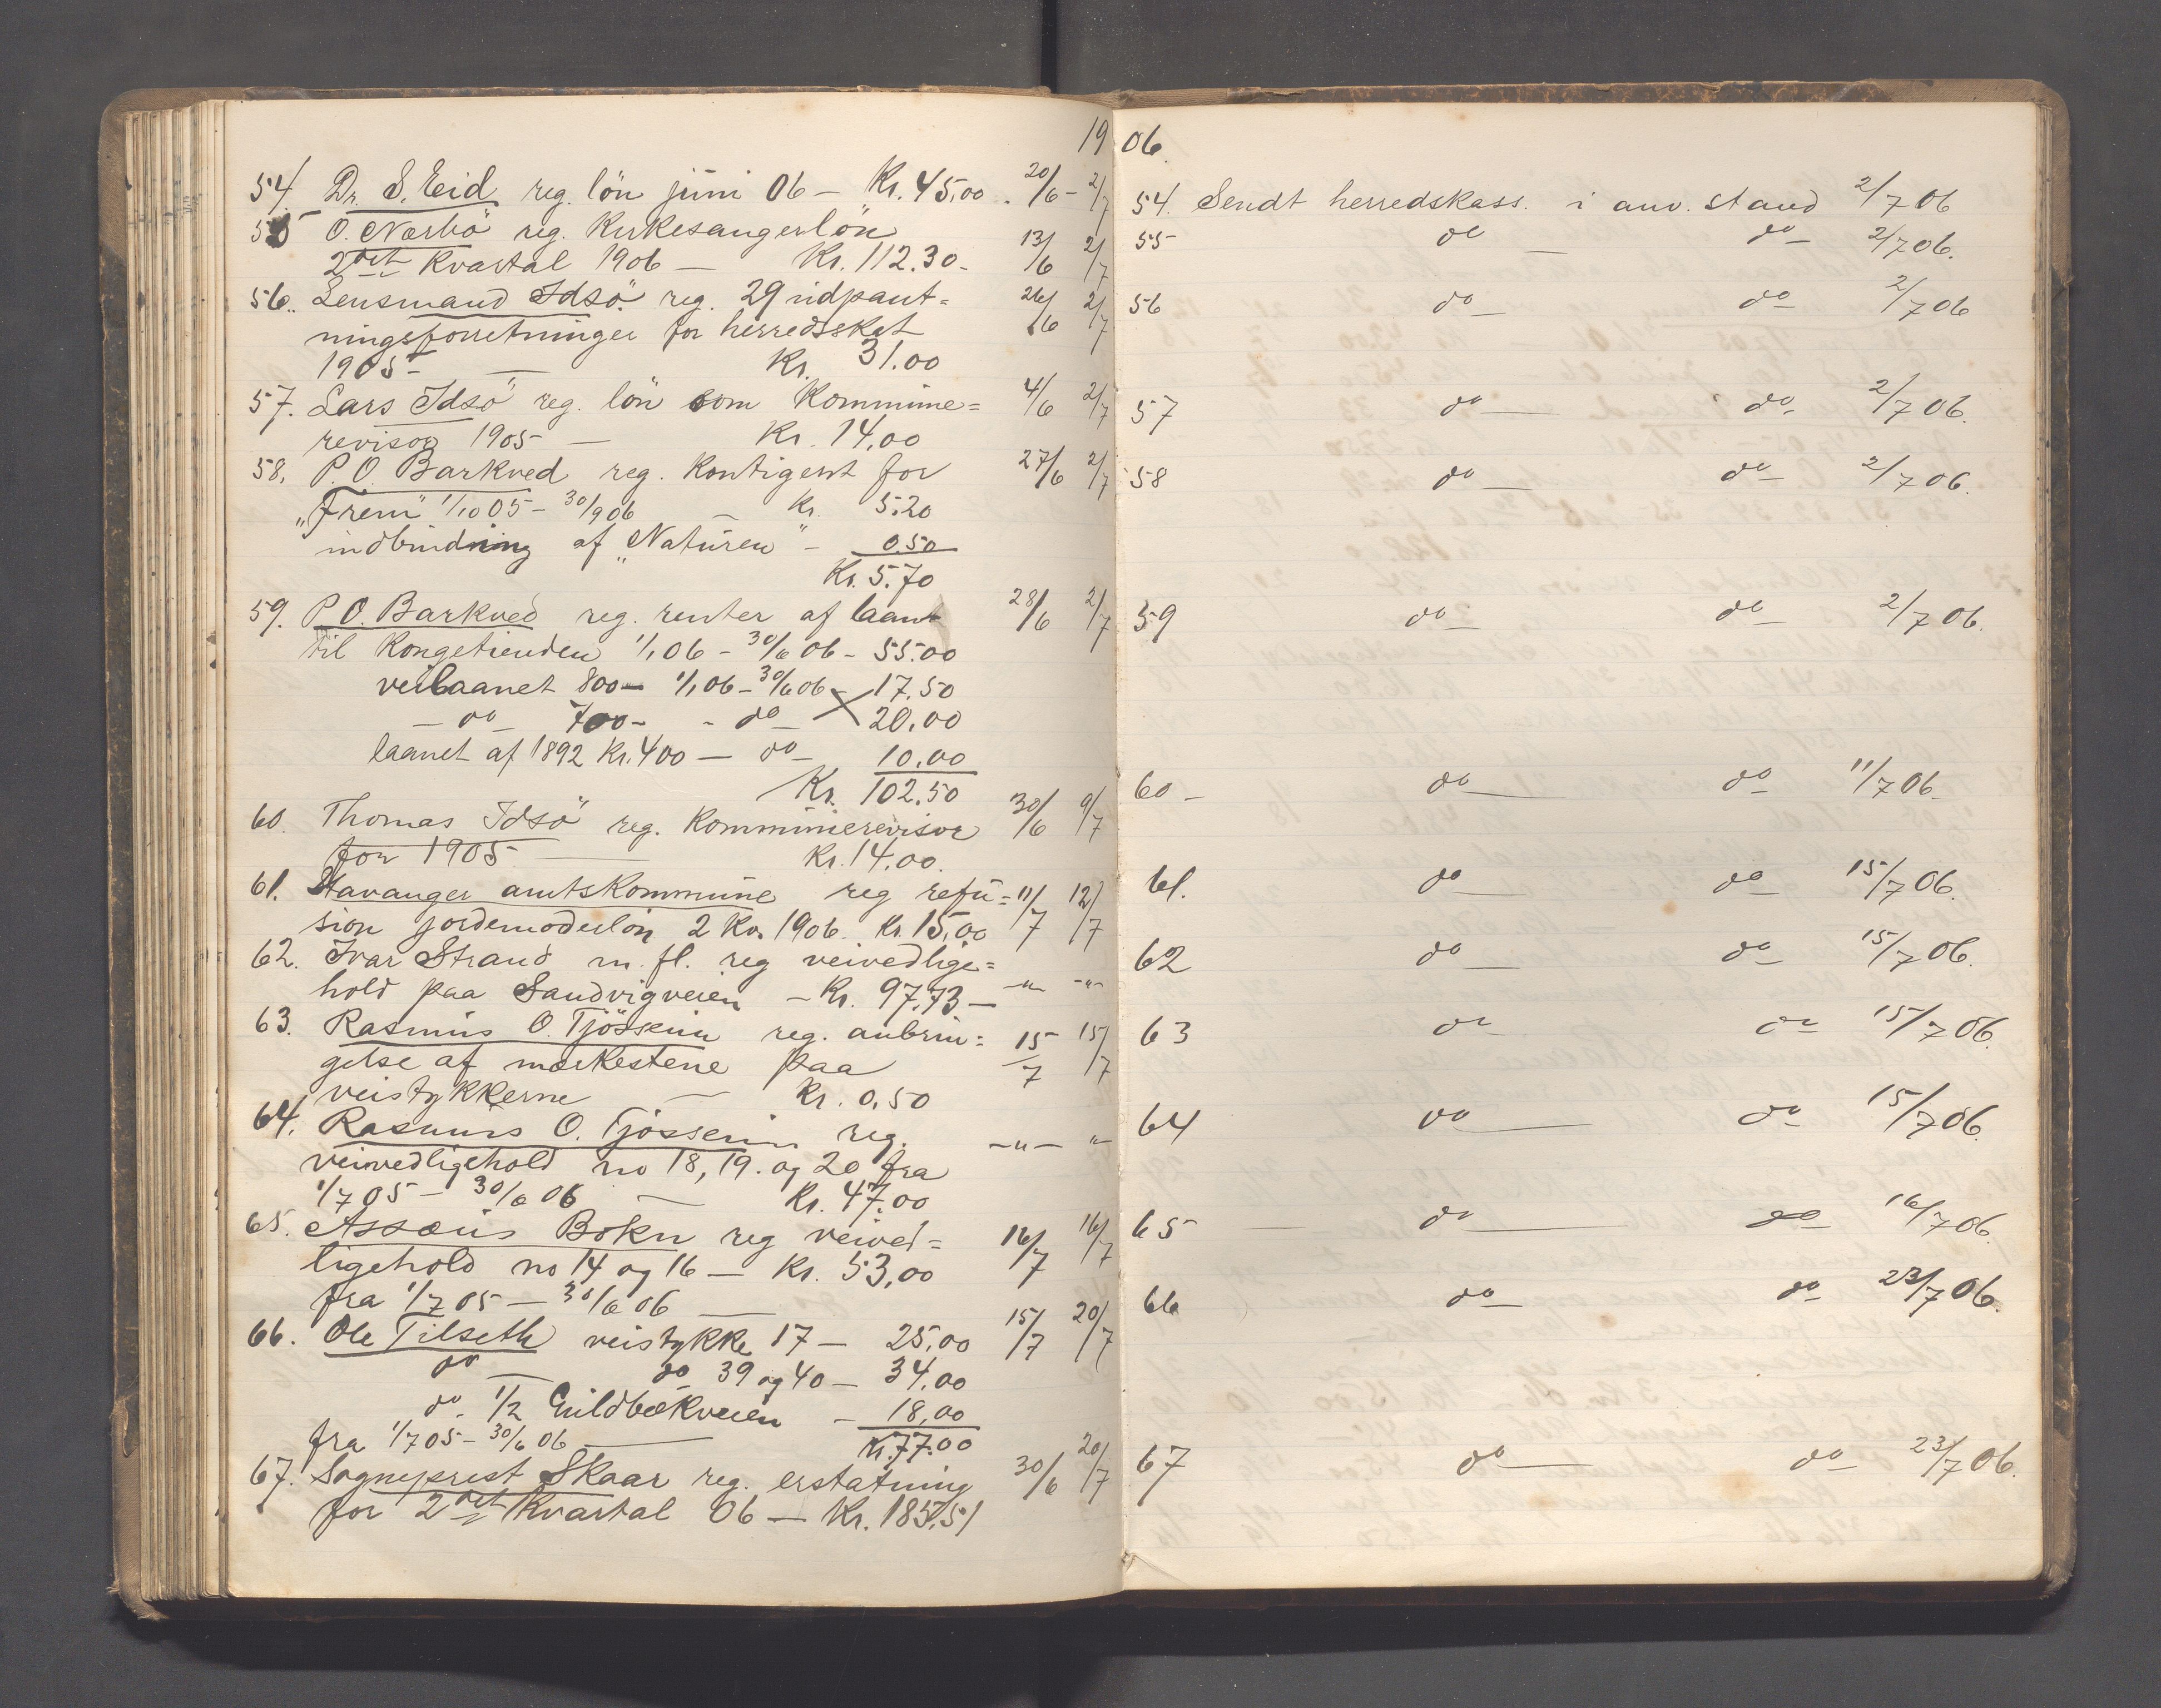 1906.
54. Dr. S. Eid reg. lön juni 06 — Kr. 45,00. 20/6 - 2/7
55 O. Nærbö reg. Kirkesangerlön 13/6 2/7
2det Kvartal 1906 — Kr. 112.30.
56. Lensmand Idsö reg. 29 udpant= 26/6 2/7
ningsforretninger for herredsskat
1905 — Kr. 31.00
57. Lars Idsö reg. lön som Kommune= 4/6 2/7
revisor 1905 — Kr. 14,00
58. P. O. Barkved reg. Kontigent for 27/6 2/7
"Frem" 1/10 05 - 30/9 06 — Kr. 5.20
indbinding af "Naturen" — 0.50
Kr. 5.70
59. P. O. Barkved reg. renter af laan 28/6 2/7
til Kongetienden 1/1 06 - 30/6 06 - 55.00
veilaanet 800 — 1/1 06 - 30/6 06 - 17.50
— do — 700 - - do — 20,00
laanet af 1892 Kr. 400 — do — 10.00
Kr. 102.50
60. Thomas Idsö reg. Kommunerevisor 30/6 9/7
for 1905 — Kr. 14.00.
61. Stavanger amtsKommune reg refu= 11/7 12/7
sion jordemoderlön 2 Kv. 1906. Kr. 15,00
62. Ivar Strand m. fl. reg veivedlige=
hold paa Sandvigveien — Kr. 97,73 — -"- -"-
63. Rasmus O. Tjössein reg. anbrin= 15/7 15/7
gelse af merkestene paa
veistykkerne — Kr. 0.50
64. Rasmus O. Tjössein reg. -"- "
veivedligehold no 18, 19. og 20 fra
1/7 05 - 30/6 06 — Kr. 47.00
65. Assæus Bokn reg veived= 16/7 16/7
ligehold no 14 og 16 — Kr. 53,00
fra 1/7 05 — 30/6 06 —
66. Ole Tilseth veistykke 17 — 25,00 15/7 20/7
do — do 39 og 40 — 34,00
do. 1/2 — 18,00
fra 1/7 05 - 30/6 06 — Kr. 77.00
67. Sogneprest Skaar reg. erstatning 30/6 20/7
for 2det Kvartal 06 — Kr. 185,51
54. Sendt herredskass. i anv. stand 2/7 06
55 do — do — 2/7 06.
56 do — do — 2/7 06
57 do — do — 2/7 06.
58 do — do — 2/7 06.
59 do — do — 2/7 06.
60 - do — do — 11/7 06.
61. do — do — 15/7 06.
62 do — do — 15/7 06.
63 do — do — 15/7 06.
64 do — do — 15/7 06.
65 — do — do — 16/7 06.
66 do — do — 23/7 06.
67 do — do — 23/7 06.